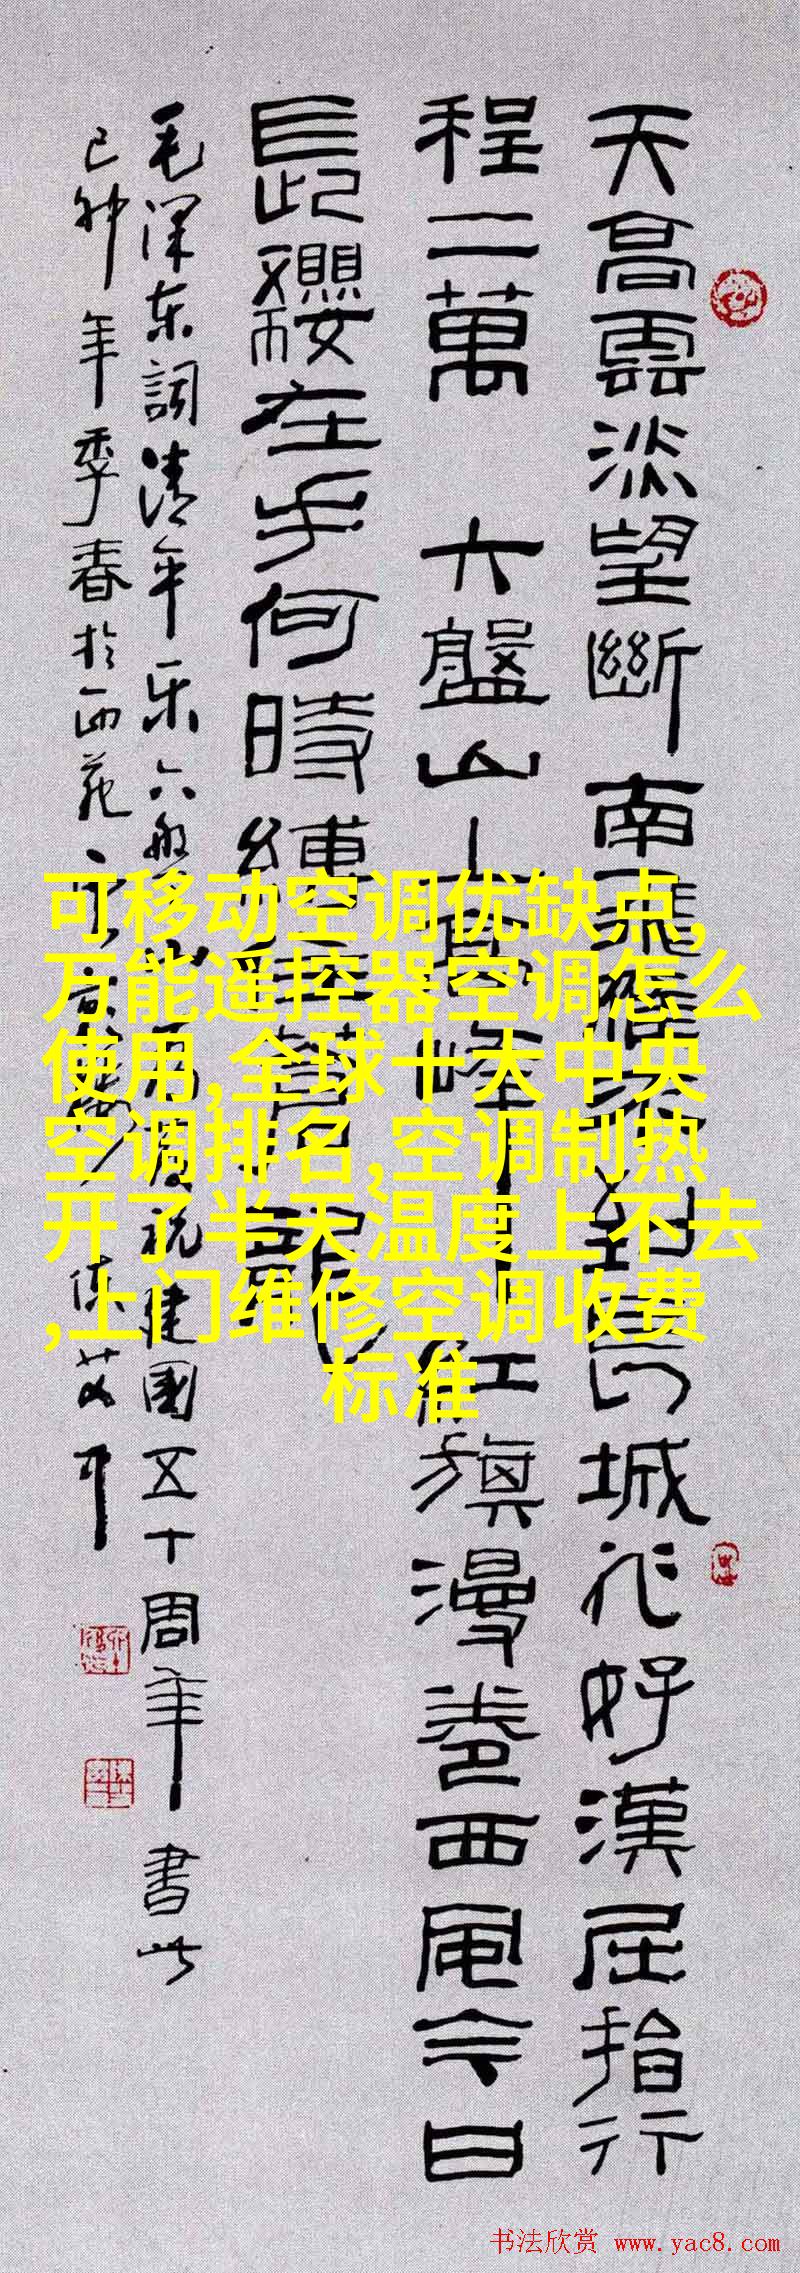 天高雲淡望斷南飛雁不到長城非好漢屈指行
程二萬 六盤山上高峰紅旗漫卷西風今日
長纓在手何時縛住蒼龍
毛泽东詞清平乐六盤山 祝建國五十周年 書此
己卯年季春於西苑
可移动空调优缺点,
万能遥控器空调怎么
使用,全球十大中央
空调排名,空调制热
开了半天温度上不去
,上门维修空调收费
标准
书法欣赏 www.yac8.com